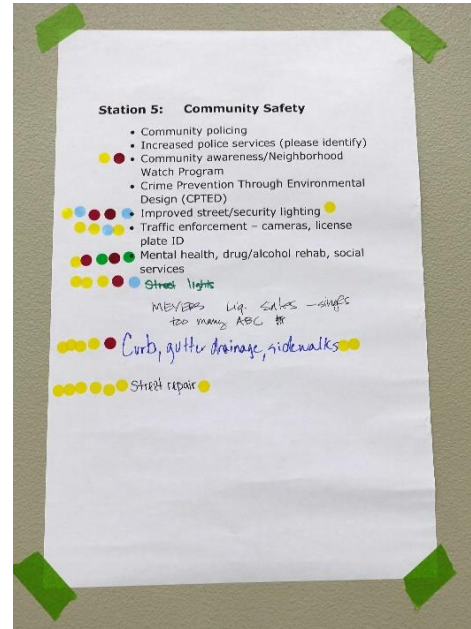 Station 5: Community Safety
• Community policing
• Increased police services (please identify)
• Community awareness/Neighborhood
Watch Program
• Crime Prevention Through Environmental
Design (CPTED)
• Improved street/security lighting
• Traffic enforcement – cameras, license
plate ID
• Mental health, drug/alcohol rehab, social
services
Street lights
MEYERS Liq. Sales – singles
too many ABC
Curb, gutter drainage, sidewalks
Street repair